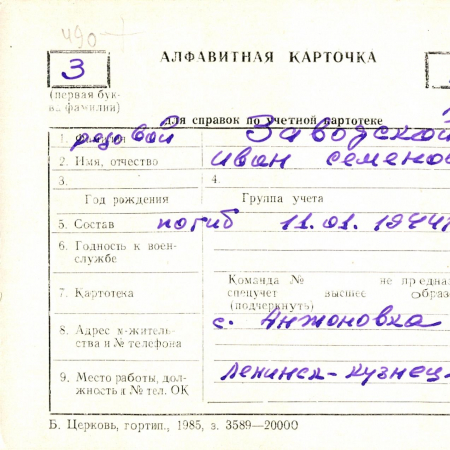 490
АЛФАВИТНАЯ КАРТОЧКА
З
(первая бук-
ва фамилии)
для справок по учетной картотеке
1. рядовой Заводской
2. Имя, отчество иван семено
3. 4.
Год рождения Группа учета
5. Состав погиб 11.01.1944
6. Годность к воен-
службе
Команда № не предна
7. Картотека спецучет высшее образ
(подчеркнуть)
8. Адрес м-житель- с. Анжоновка
ства и № телефона
9. Место работы, дол- Ленинск-кузнец-
жность и № тел. ОК
Б. Церковь, гортип., 1985, з. 3589—20000